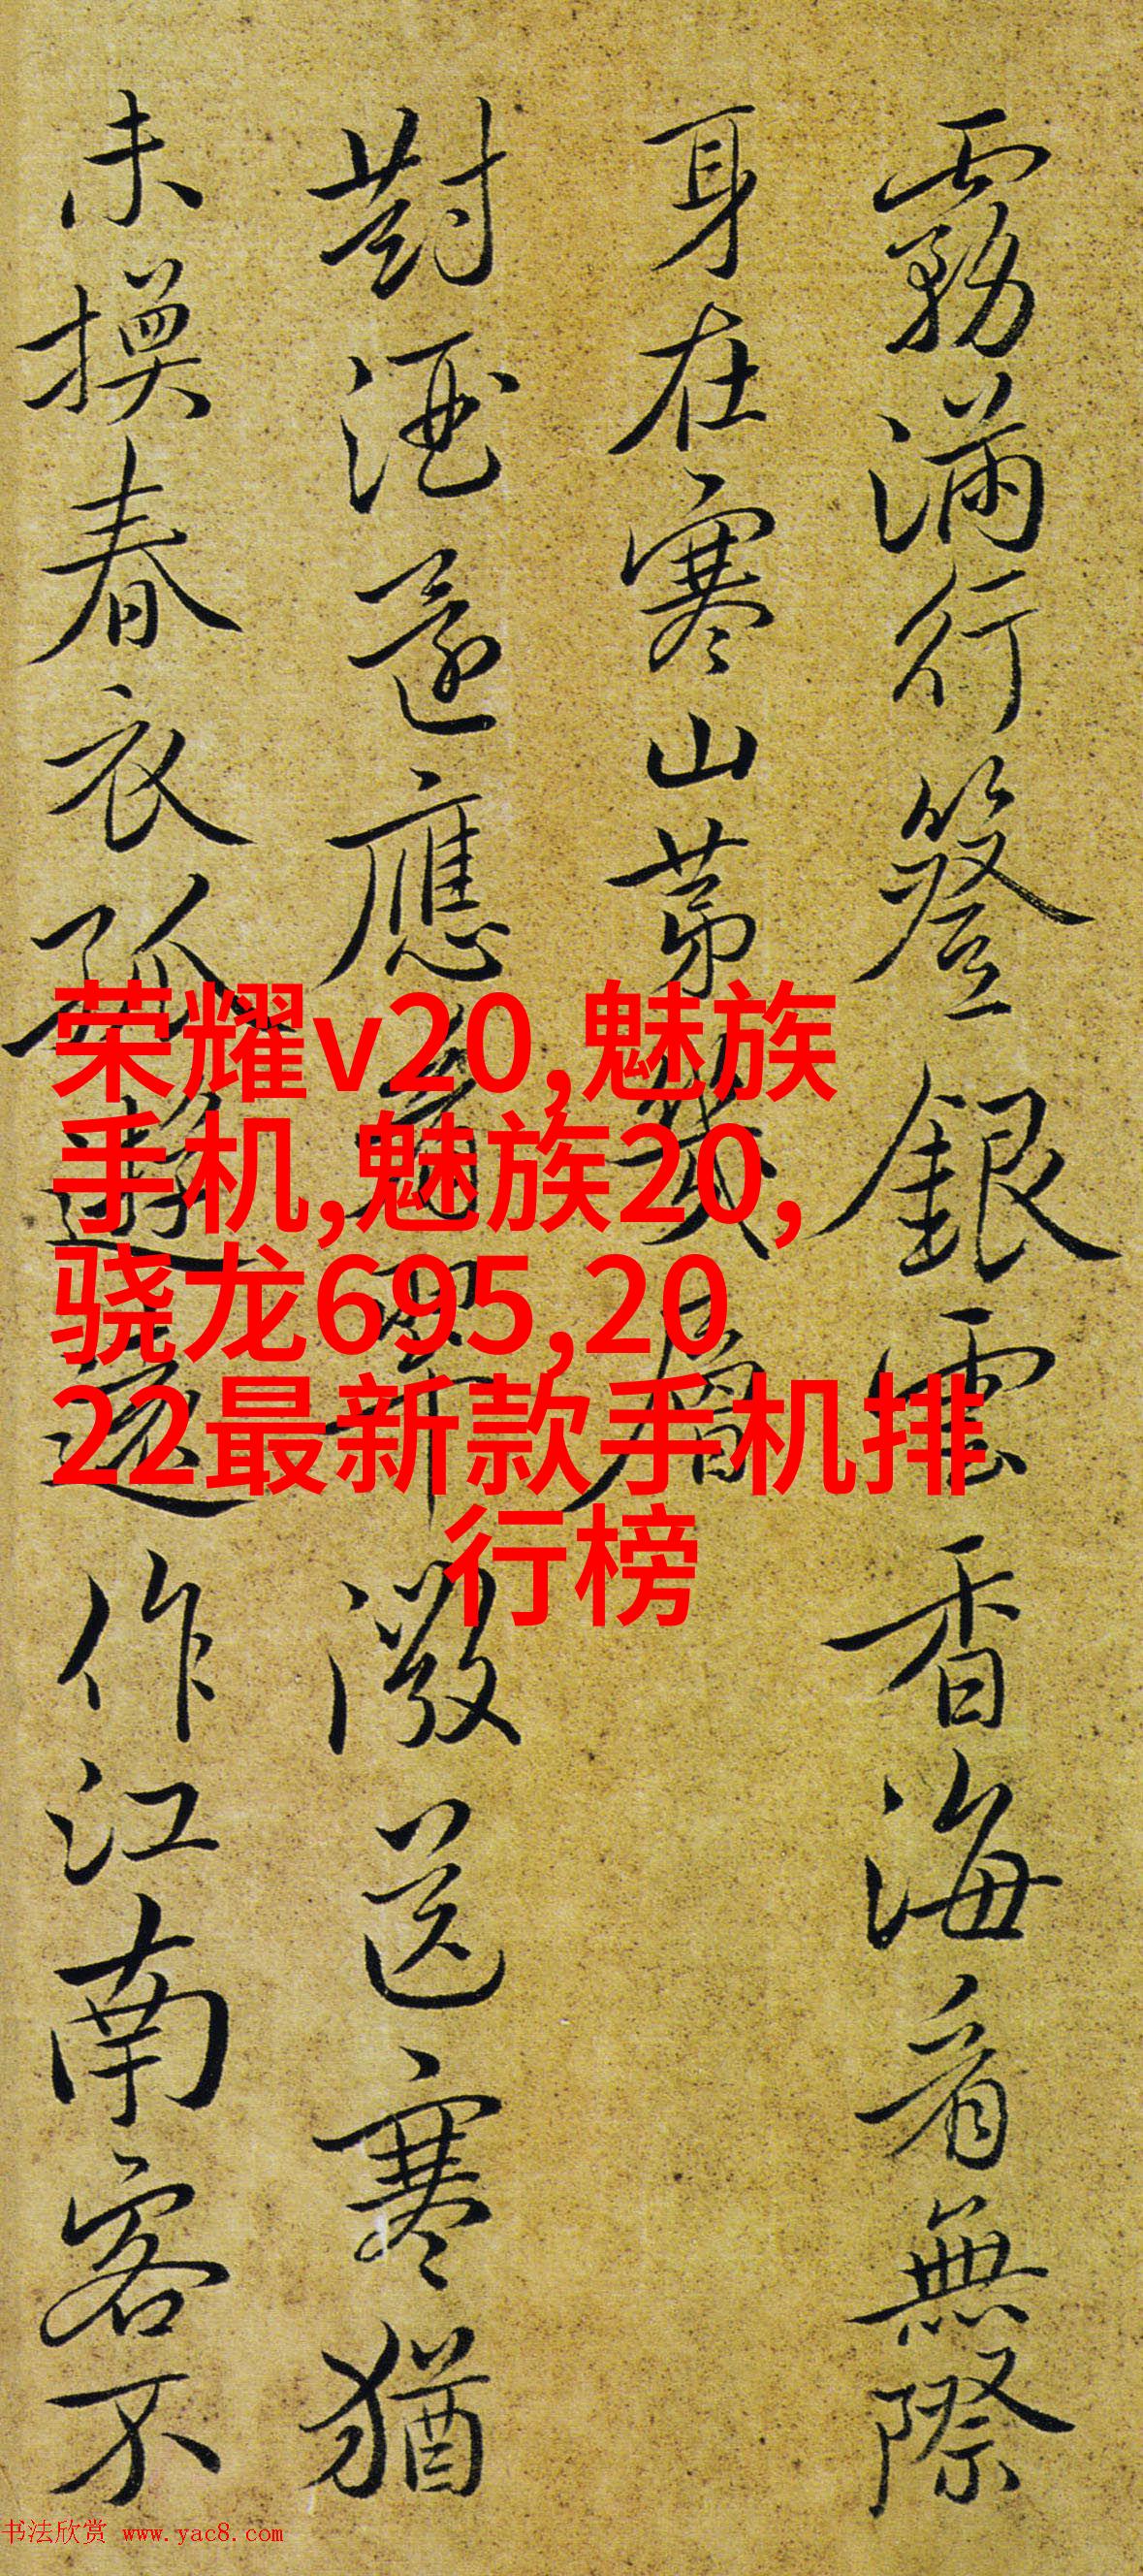 霧滿行簦銀雲香海看無際
身在寒山第幾層
對酒還應送寒猶
未換春衣孤遊遠作江南客不
荣耀v20,魅族
手机,魅族20,
骁龙695,20
22最新款手机排
行榜
书法欣赏 www.yac8.com